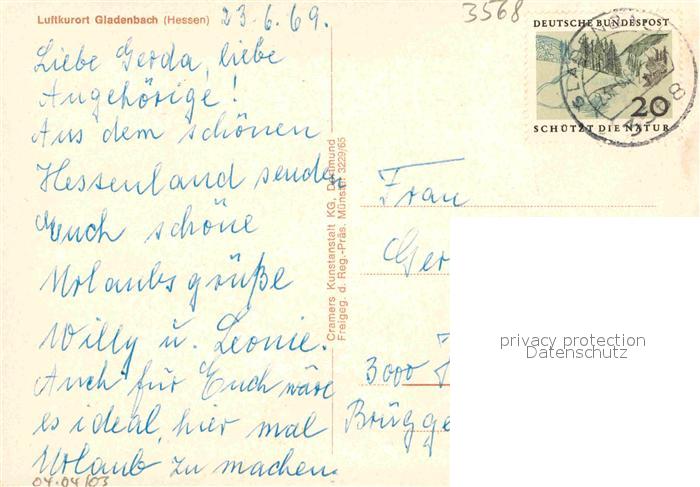 Luftkurort Gladenbach (Hessen)
23.6.69.
3568
DEUTSCHE BUNDESPOST
20
SCHÜTZT DIE NATUR
3568
Liebe Gerda, liebe
Angehörige!
Aus dem schönen
Hessenland senden
Euch schöne
Urlaubsgrüße
Willy u. Leonie.
Auch für Euch wäre
es ideal, hier mal
Urlaub zu machen.
04.04/03
Cramers Kunstanstalt KG, Dortmund
Freigeg. d. Reg.-Präs. Münster 3229/65
Frau
Ger
3000
Brügge
privacy protection
Datenschutz